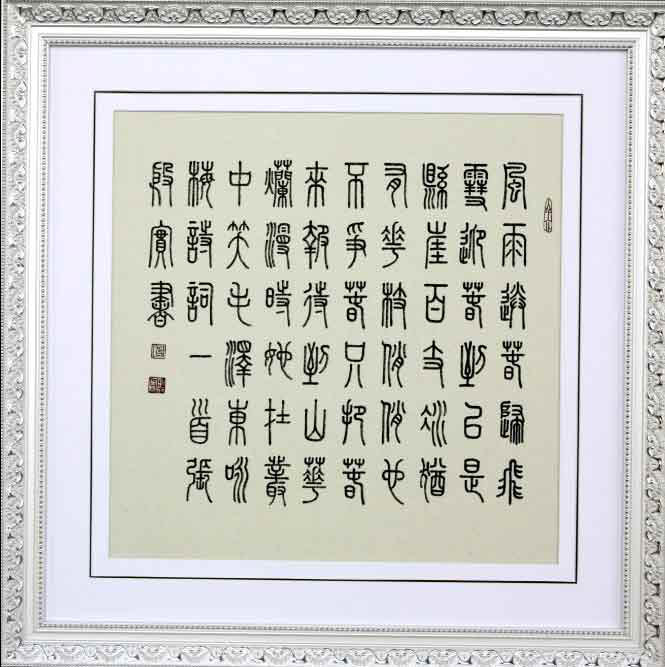 風雨送春歸飛
雪迎春到已是
縣崖百丈冰猶
有花枝俏俏也
不爭春只把春
來報待到山華
爛漫時她在叢
中笑毛澤東咏
梅詩詞一首張
殷實書